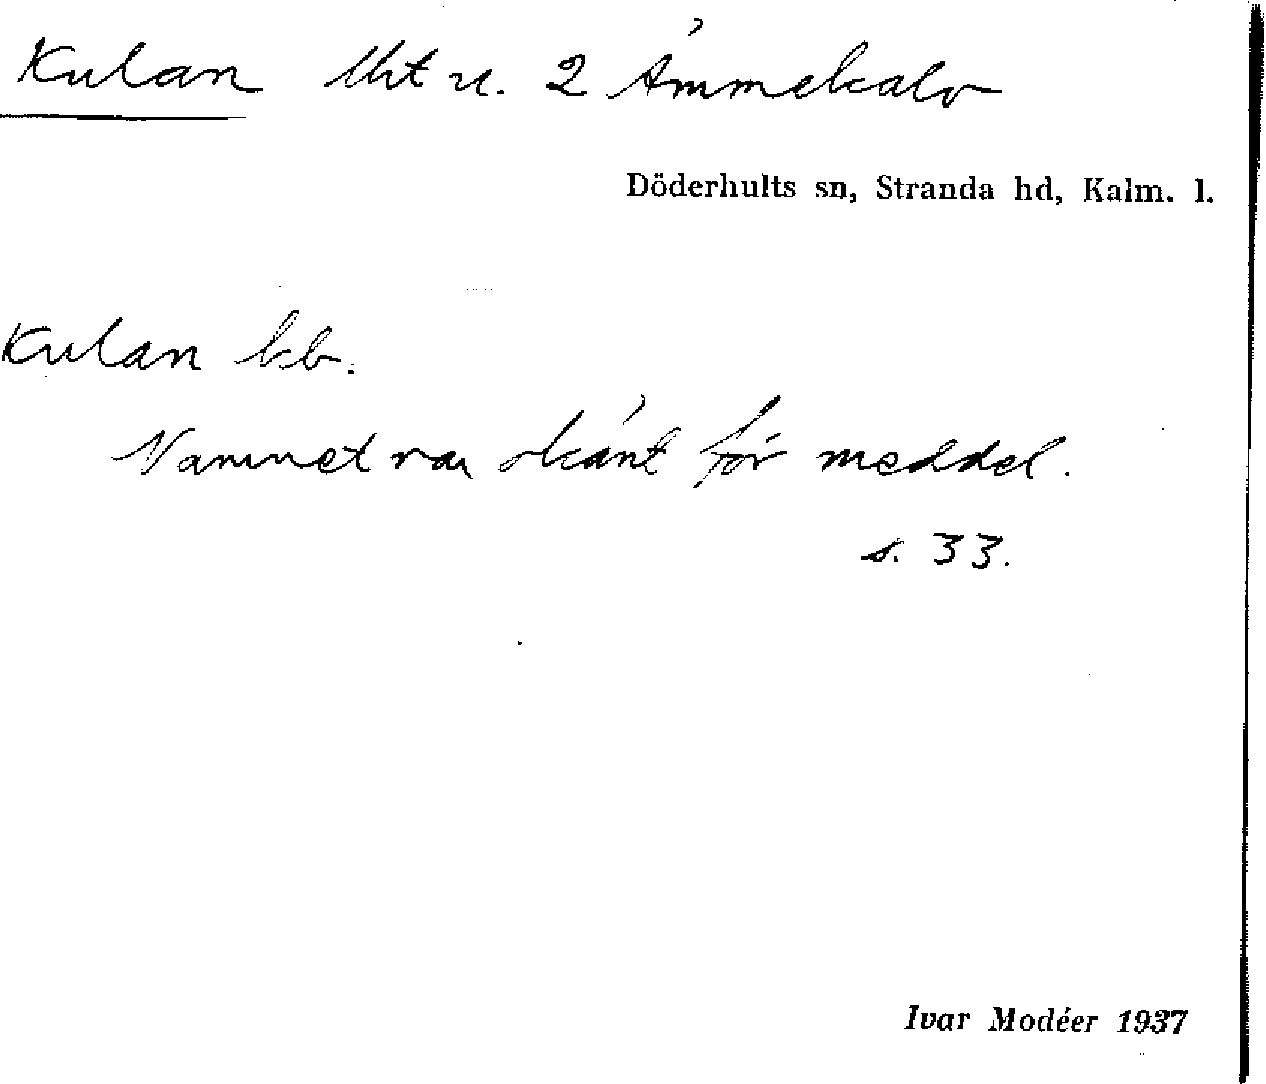 Kulan lht u. 2 Ämmekalv
Döderhults sn, Stranda hd, Kalm. l.
Kulan kb.
Namnet var okänt för meddel.
s. 33.
Ivar Modéer 1937